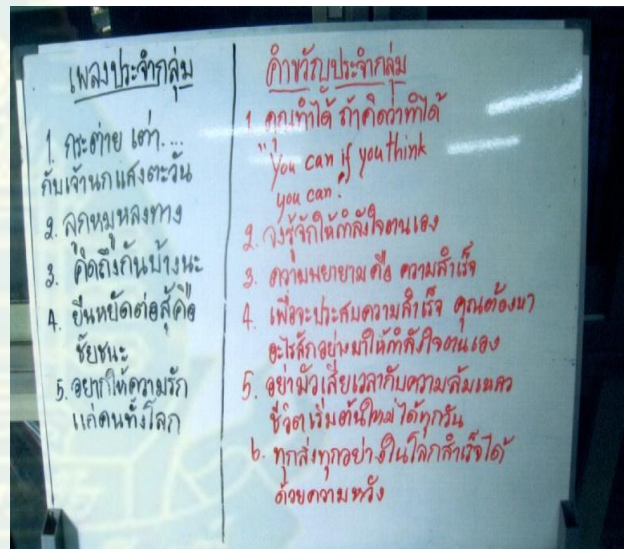 เพลงประจำกลุ่ม
1. กระต่าย เต่า....
กับเจ้านกแสงตะวัน
2. ลูกหมูหลงทาง
3. คิดถึงกันบ้างนะ
4. ยืนหยัดต่อสู้คือ
ชัยชนะ
5. อยากให้ความรัก
แก่คนทั้งโลก
คำขวัญประจำกลุ่ม
1. คุณทำได้ ถ้าคิดว่าทำได้
"you can if you think
you can."
2. จงรู้จักให้กำลังใจตนเอง
3. ความพยายามคือ ความสำเร็จ
4. เพื่อจะประสบความสำเร็จ คุณต้องหา
อะไรสักอย่างมาให้กำลังใจตนเอง
5. อย่ามัวเสียเวลากับความล้มเหลว
ชีวิตเริ่มต้นใหม่ได้ทุกวัน
6. ทุกสิ่งทุกอย่างในโลกสำเร็จได้
ด้วยความหวัง